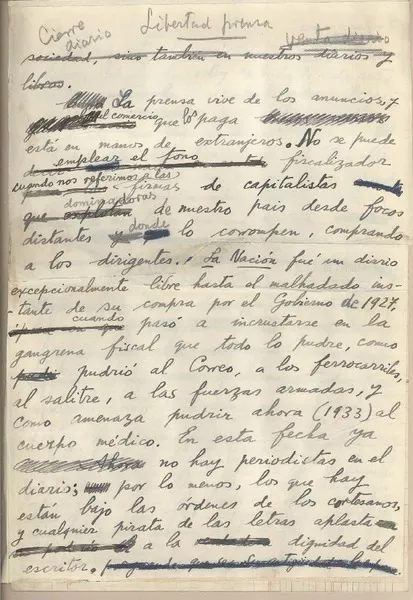 Cierre diario
Libertad prensa
venta diario
sociedad, sino también en nuestros diarios y
libros.
La prensa vive de los anuncios, y
el comercio que los paga
está en manos de extranjeros. No se puede
emplear el tono fiscalizador
cuando nos referimos a las
firmas de capitalistas
dominadoras
que explotan de nuestro país desde focos
distantes y donde lo corrompen, comprando
a los dirigentes. La Nación fué un diario
excepcionalmente libre hasta el malhadado ins-
-tante de su compra por el Gobierno de 1927,
cuando pasó a incrustarse en la
gangrena fiscal que todo lo pudre, como
pudrió al Correo, a los ferrocarriles,
al salitre, a las fuerzas armadas, y
como amenaza pudrir ahora (1933) al
cuerpo médico. En esta fecha ya
Ahora no hay periodistas en el
diario; por lo menos, los que hay
están bajo las órdenes de los cortesanos,
y cualquier pirata de las letras aplasta
a la dignidad del
escritor.